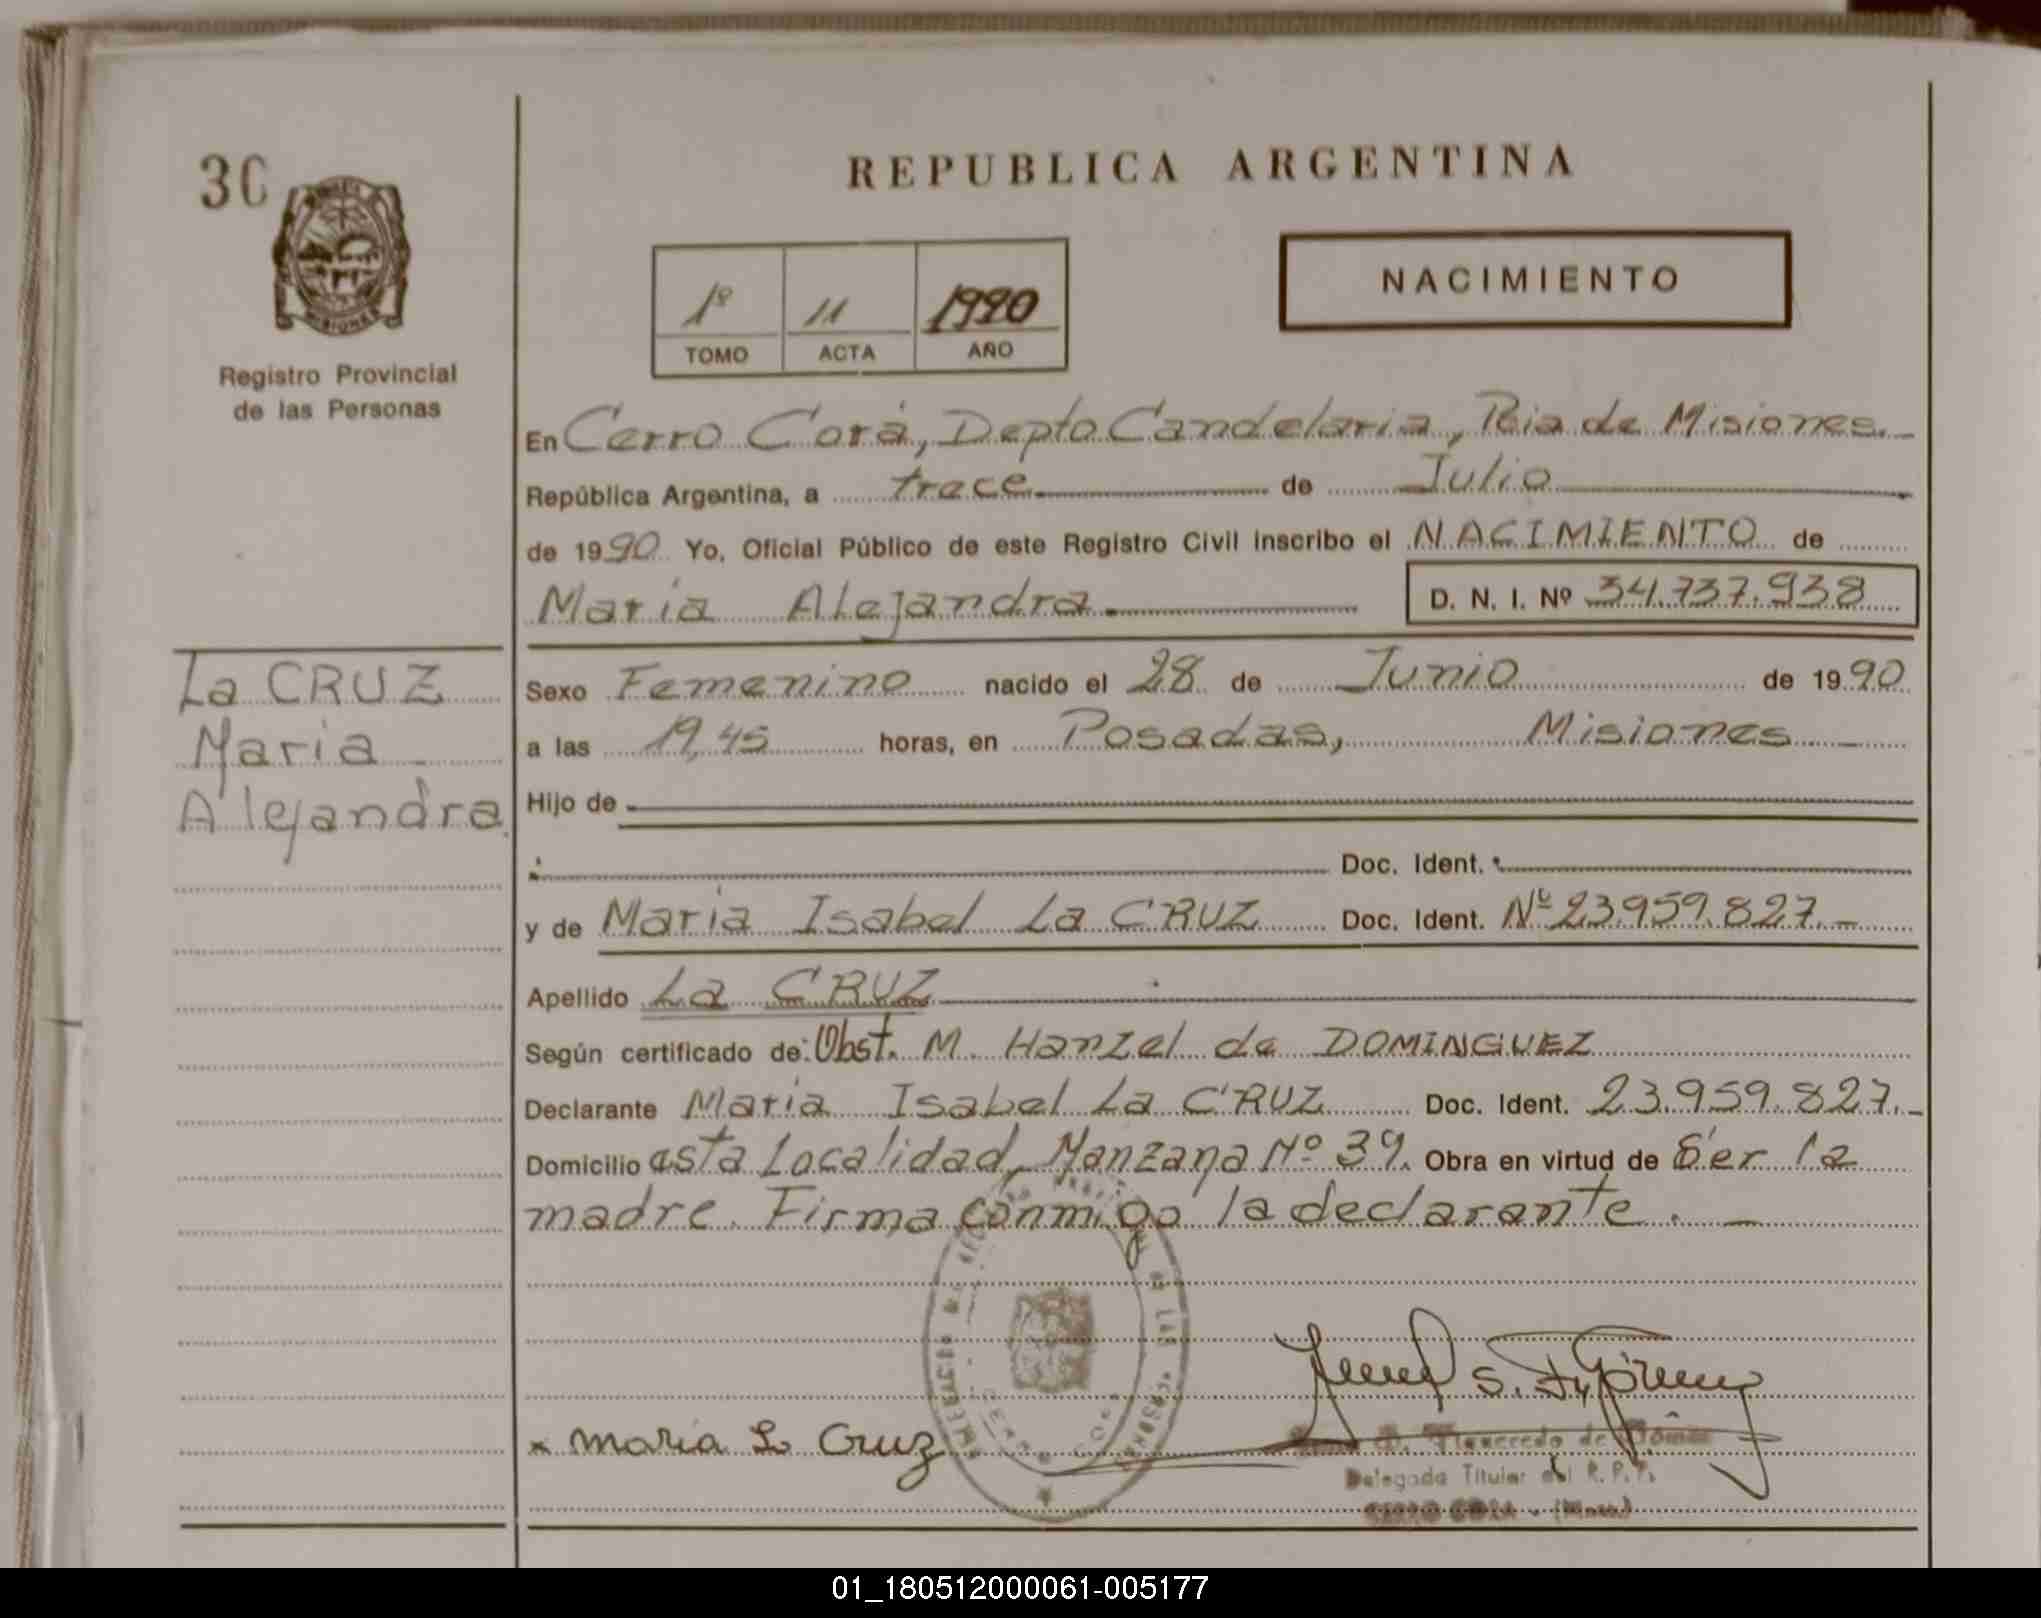 30
REPUBLICA ARGENTINA
MISIONES
Registro Provincial
de las Personas
1º 11 1990
TOMO ACTA AÑO
NACIMIENTO
En Cerro Corá, Depto Candelaria, Pcia de Misiones.-
República Argentina, a trece de Julio
de 1990 Yo, Oficial Público de este Registro Civil inscribo el NACIMIENTO de
Maria Alejandra.
D. N. I. Nº 34.737.938
La CRUZ
Maria
Alejandra
Sexo Femenino nacido el 28 de Junio de 1990
a las 19,45 horas, en Posadas, Misiones
Hijo de
Doc. Ident.
y de Maria Isabel La CRUZ Doc. Ident. Nº 23.959.827.-
Apellido La CRUZ
Según certificado de: Obst. M. Hanzel de DOMINGUEZ
Declarante Maria Isabel La CRUZ Doc. Ident. 23.959.827.-
Domicilio esta Localidad, Manzana Nº 39. Obra en virtud de Ser la
madre. Firma conmigo la declarante. -
x maria L Cruz
Figueredo de Gómez
Delegada Titular del R. P. P.
CERRO CORA - (Mnes.)
01_180512000061-005177